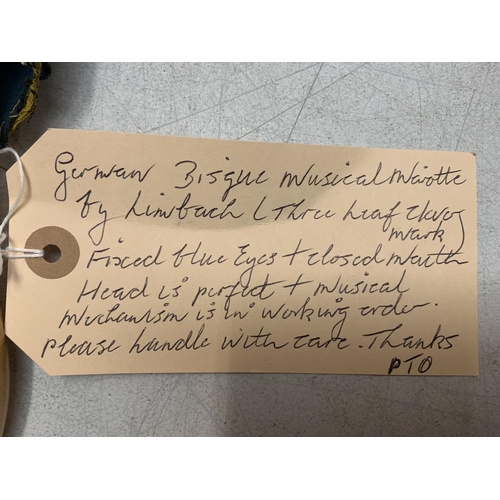 German Bisque musical Marotte
by Limbach (Three leaf clover
mark)
Fixed blue Eyes + closed mouth
Head is perfect + musical
mechanism is in working order.
please handle with care. Thanks
PTO